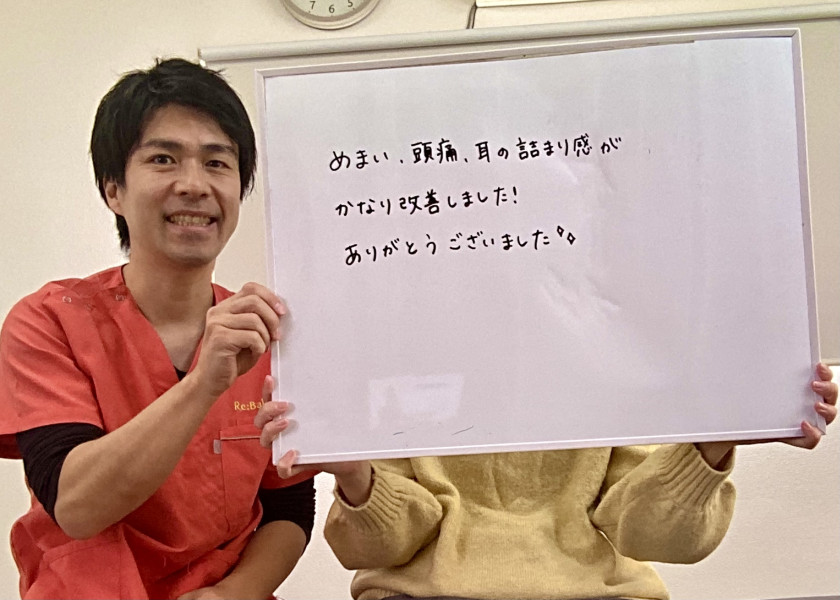 7 6 5
めまい、頭痛、耳の詰まり感が
かなり改善しました!
ありがとうございました